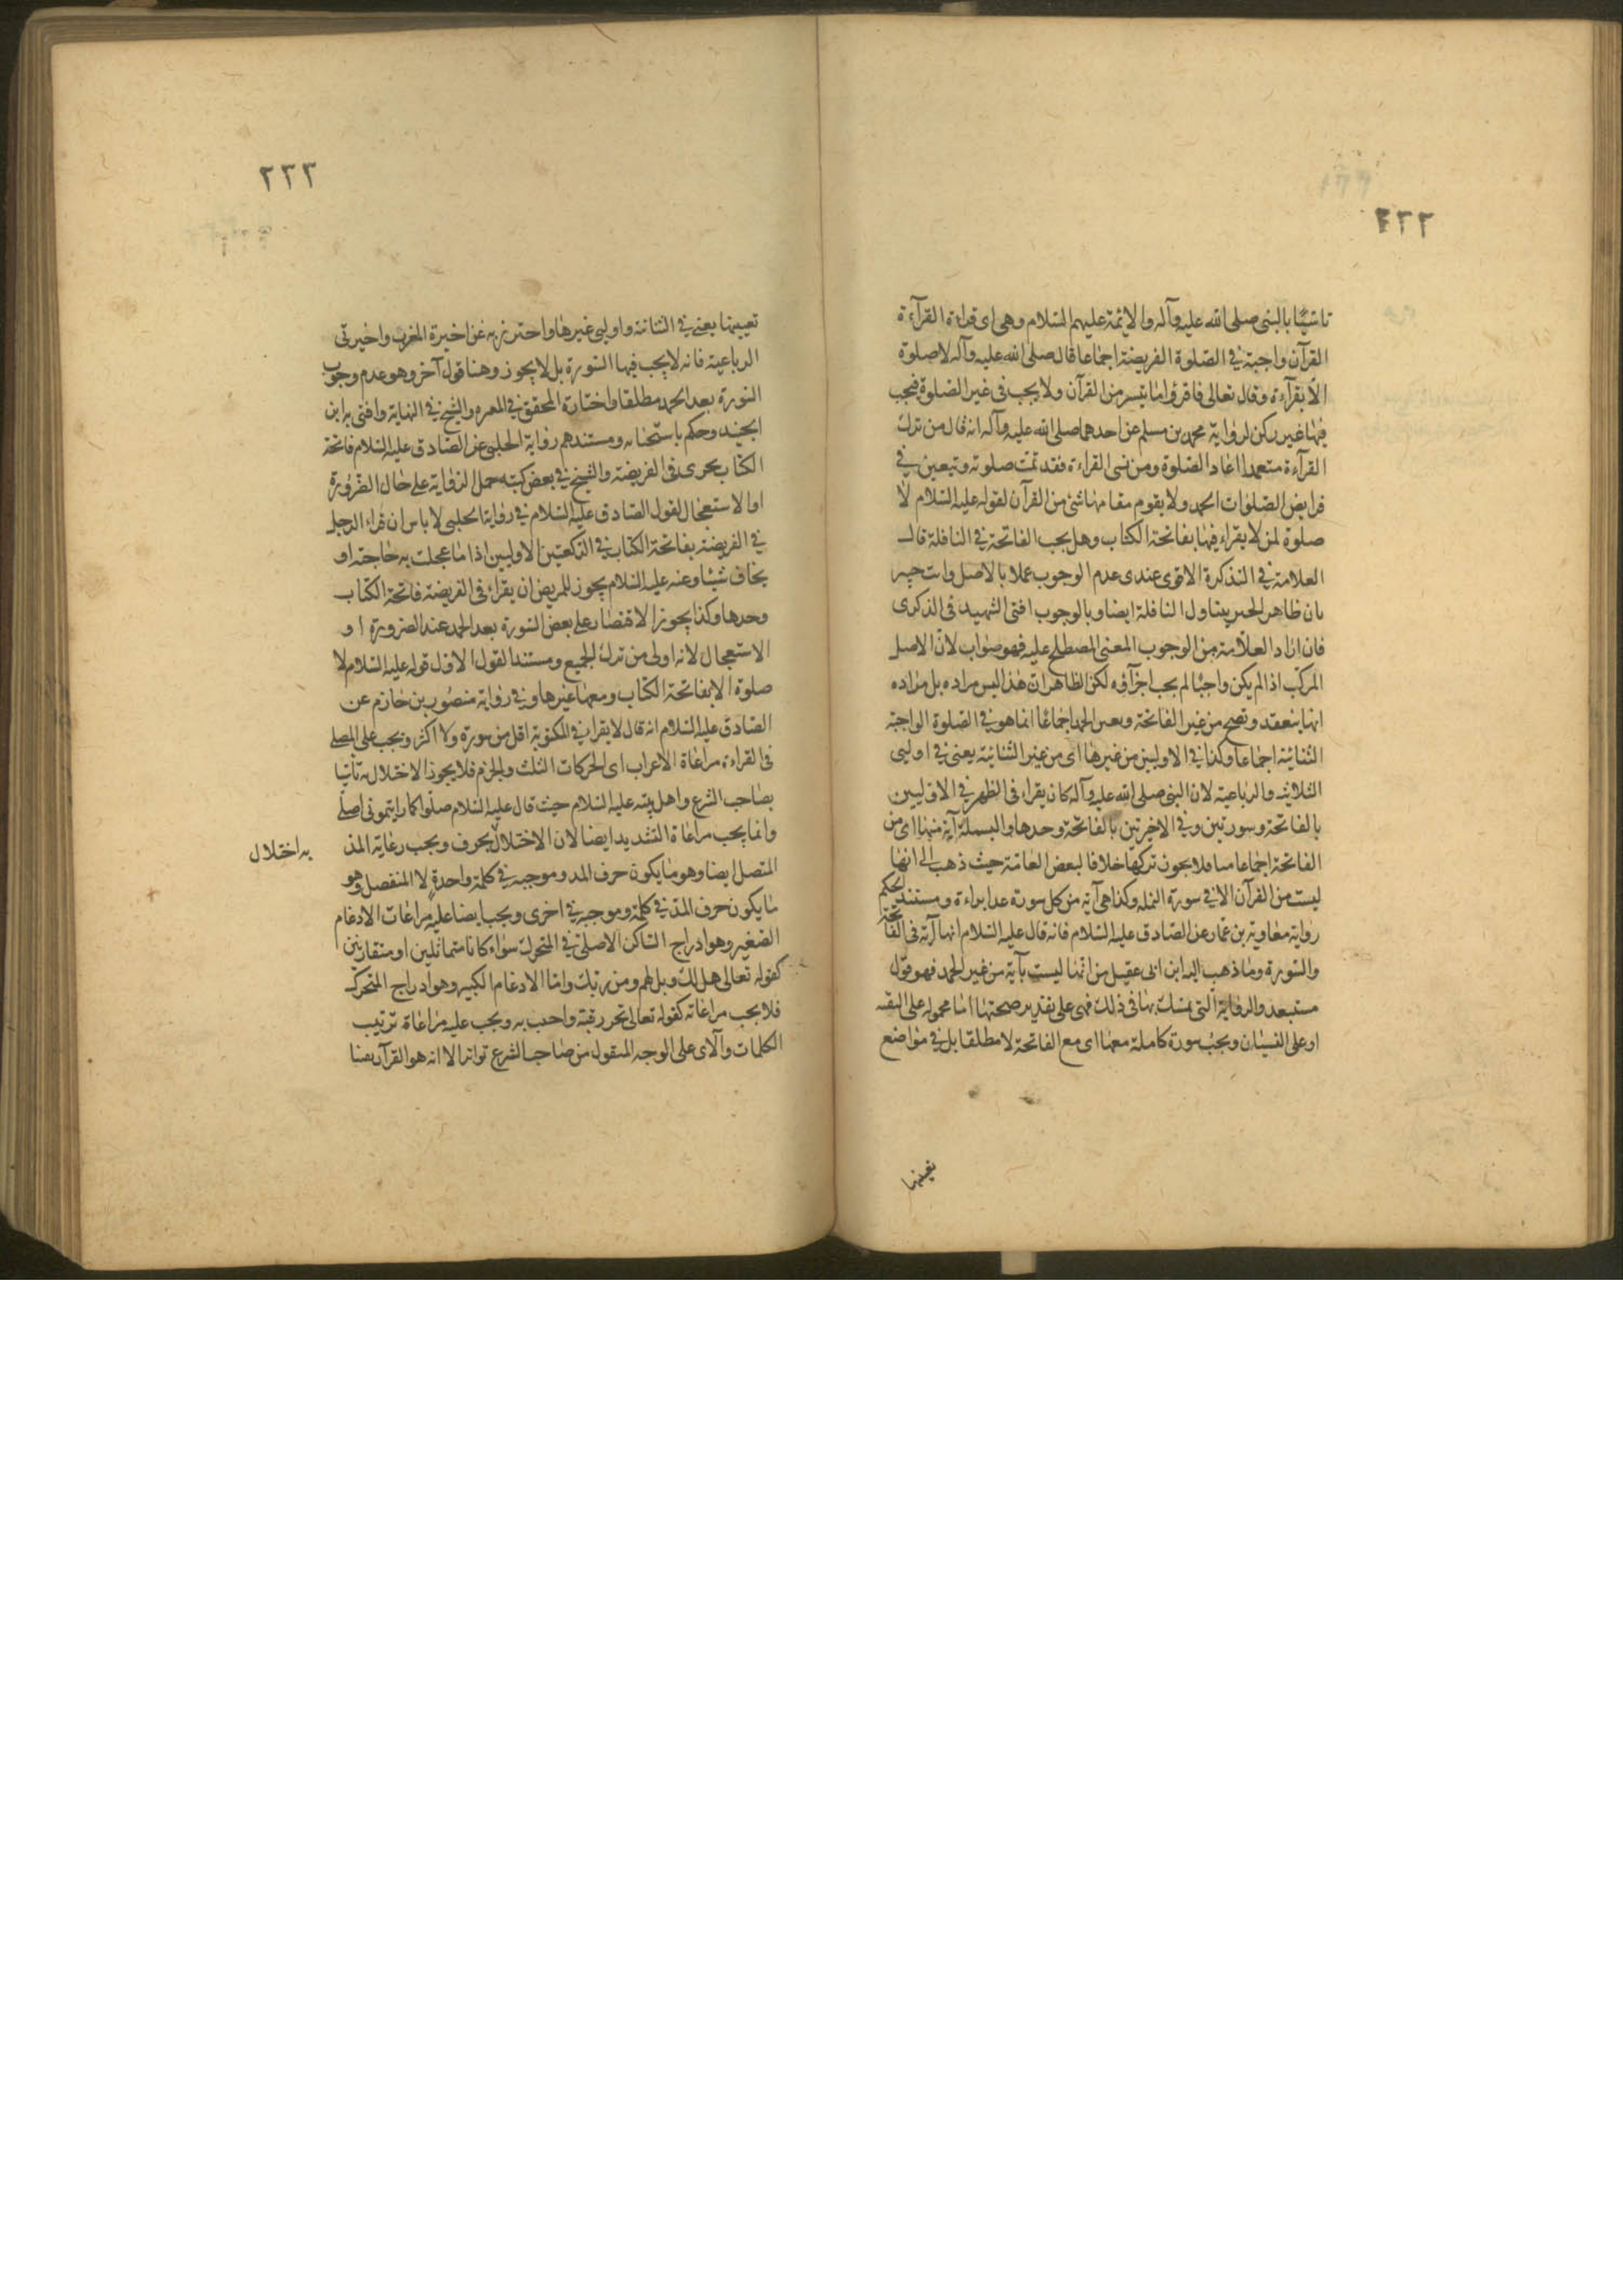 ٢٢٢
تاسيًا بالنبى صلى الله عليه وآله والائمة عليهم السلام وهى اى قراءة القرآءة
القرآن واجبة في الصلوة الفريضة اجماعا قال صلى الله عليه وآله لا صلوة
الا بقرآءة وقال تعالى فاقرؤا ما تيسر من القرآن ولا يجب فى غير الصلوة فيجب
فيها غير ركن لرواية محمد بن مسلم عن احدهما صلى الله عليه وآله انه قال من ترك
القرآءة متعمدا اعاد الصلوة ومن نسى القراءة فقد تمت صلوته وتتعين في
فرايض الصلوات الحمد ولا يقوم مقامها شئ من القرآن لقوله عليه السلام لا
صلوة لمن لا يقراء فيها بفاتحة الكتاب وهل يجب الفاتحة في النافلة قال
العلامة في التذكرة الاقوى عندى عدم الوجوب عملا بالاصل وانت خبير
بان ظاهر الخبر يتناول النافلة ايضا وبالوجوب افتى الشهيد فى الذكرى
فان اراد العلامة من الوجوب المعنى المصطلح عليه فهو صواب لان الاصل
المركب اذا لم يكن واجبا لم يجب اجزآؤه لكن الظاهر ان هذا ليس مراده بل مراده
انها ينعقد وتصح من غير الفاتحة وتعين الحمد اجماعًا انما هو في الصلوة الواجبة
الثنائية اجماعا وكذا في الاوليين من غيرها اى من غير الثنائية يعنى في اوليى
الثلاثية والرباعية لان النبى صلى الله عليه وآله كان يقراء فى الظهر في الاوليين
بالفاتحة وسورتين وفي الاخيرتين بالفاتحة وحدها والبسملة آية منها اى من
الفاتحة اجماعا منا فلا يجوز تركها خلافا لبعض العامة حيث ذهب الى انها
ليست من القرآن الا في سورة النمل وكذا هى آية من كل سورة عدا براءة ومستند الحكم
رواية معاوية بن عمار عن الصادق عليه السلام فانه قال عليه السلام انها آية فى الفاتحة
والسورة وما ذهب اليه ابن ابى عقيل من انها ليست بآية من غير الحمد فهو قول
مستبعد والرواية التى تمسك بها فى ذلك فهى على تقدير صحتها اما محمولة على التقية
او على النسيان ويجب سورة كاملة معها اى مع الفاتحة لا مطلقا بل في مواضع
تعيينها
٢٢٣
تعيينها يعنى في الثنائية واوليى غيرها واحترز به عن اخيرة المغرب واخيرتى
الرباعية فانه لا يجب فيها السورة بل لا يجوز وهنا قول آخر وهو عدم وجوب
السورة بعد الحمد مطلقا واختاره المحقق في المعتبر والشيخ في النهاية وافتى به ابن
الجنيد وحكم باستحبابه ومستندهم رواية الحلبى عن الصادق عليه السلام فاتحة
الكتاب يجزى فى الفريضة والشيخ في بعض كتبه حمل الرواية على حال الضرورة
او الاستعجال لقول الصادق عليه السلام في رواية الحلبى لا باس ان يقراء الرجل
في الفريضة بفاتحة الكتاب في الركعتين الاوليين اذا ما عجلت به حاجة او
يخاف شيئا وعنه عليه السلام يجوز للمريض ان يقراء فى الفريضة فاتحة الكتاب
وحدها وكذا يجوز الاقتصار على بعض السورة بعد الحمد عند الضرورة او
الاستعجال لانه اولى من ترك الجميع ومستند القول الاول قوله عليه السلام لا
صلوة الا بفاتحة الكتاب ومعها غيرها وفي رواية منصور بن حازم عن
الصادق عليه السلام انه قال لا يقرا في المكتوبة اقل من سورة ولا اكثر ويجب على المصلى
فى القراءة مراعاة الاعراب اى الحركات الثلث والجزم فلا يجوز الاختلال به تأسيا
بصاحب الشرع واهل بيته عليه السلام حيث قال عليه السلام صلوا كما رايتمونى اصلى
وانما يجب مراعاة التشديد ايضا لان الاختلال بحرف ويجب رعاية المد
به اختلال
المتصل ايضا وهو ما يكون حرف المد وموجبه في كلمة واحدة لا المنفصل وهو
ما يكون حرف المد في كلمة وموجبه في اخرى ويجب ايضا عليه مراعات الادغام
الصغير وهو ادراج الساكن الاصلى في المتحرك سواء كانا متماثلين او متقاربين
كقوله تعالى هل لك وبل لهم ومن ربك واما الادغام الكبير وهو ادراج المتحرك
فلا يجب مراعاته كقوله تعالى تحرير رقبة واجب به ويجب عليه مراعاة ترتيب
الكلمات والآى على الوجه المنقول من صاحب الشرع تواترا لا انه هو القرآن بعنا